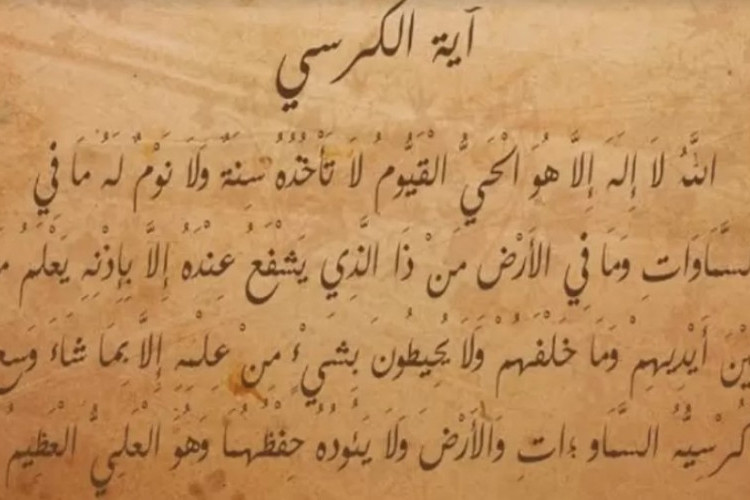 آية الكرسي
اللَّهُ لَا إِلَهَ إِلَّا هُوَ الْحَيُّ الْقَيُّومُ لَا تَأْخُذُهُ سِنَةٌ وَلَا نَوْمٌ لَهُ مَا فِي
السَّمَاوَاتِ وَمَا فِي الْأَرْضِ مَنْ ذَا الَّذِي يَشْفَعُ عِنْدَهُ إِلَّا بِإِذْنِهِ يَعْلَمُ
أَيْدِيهِمْ وَمَا خَلْفَهُمْ وَلَا يُحِيطُونَ بِشَيْءٍ مِنْ عِلْمِهِ إِلَّا بِمَا شَاءَ وَسِعَ
كُرْسِيُّهُ السَّمَاو ،اتِ وَالْأَرْضَ وَلَا يَئُودُهُ حِفْظُهُمَا وَهُوَ الْعَلِيُّ الْعَظِيمُ